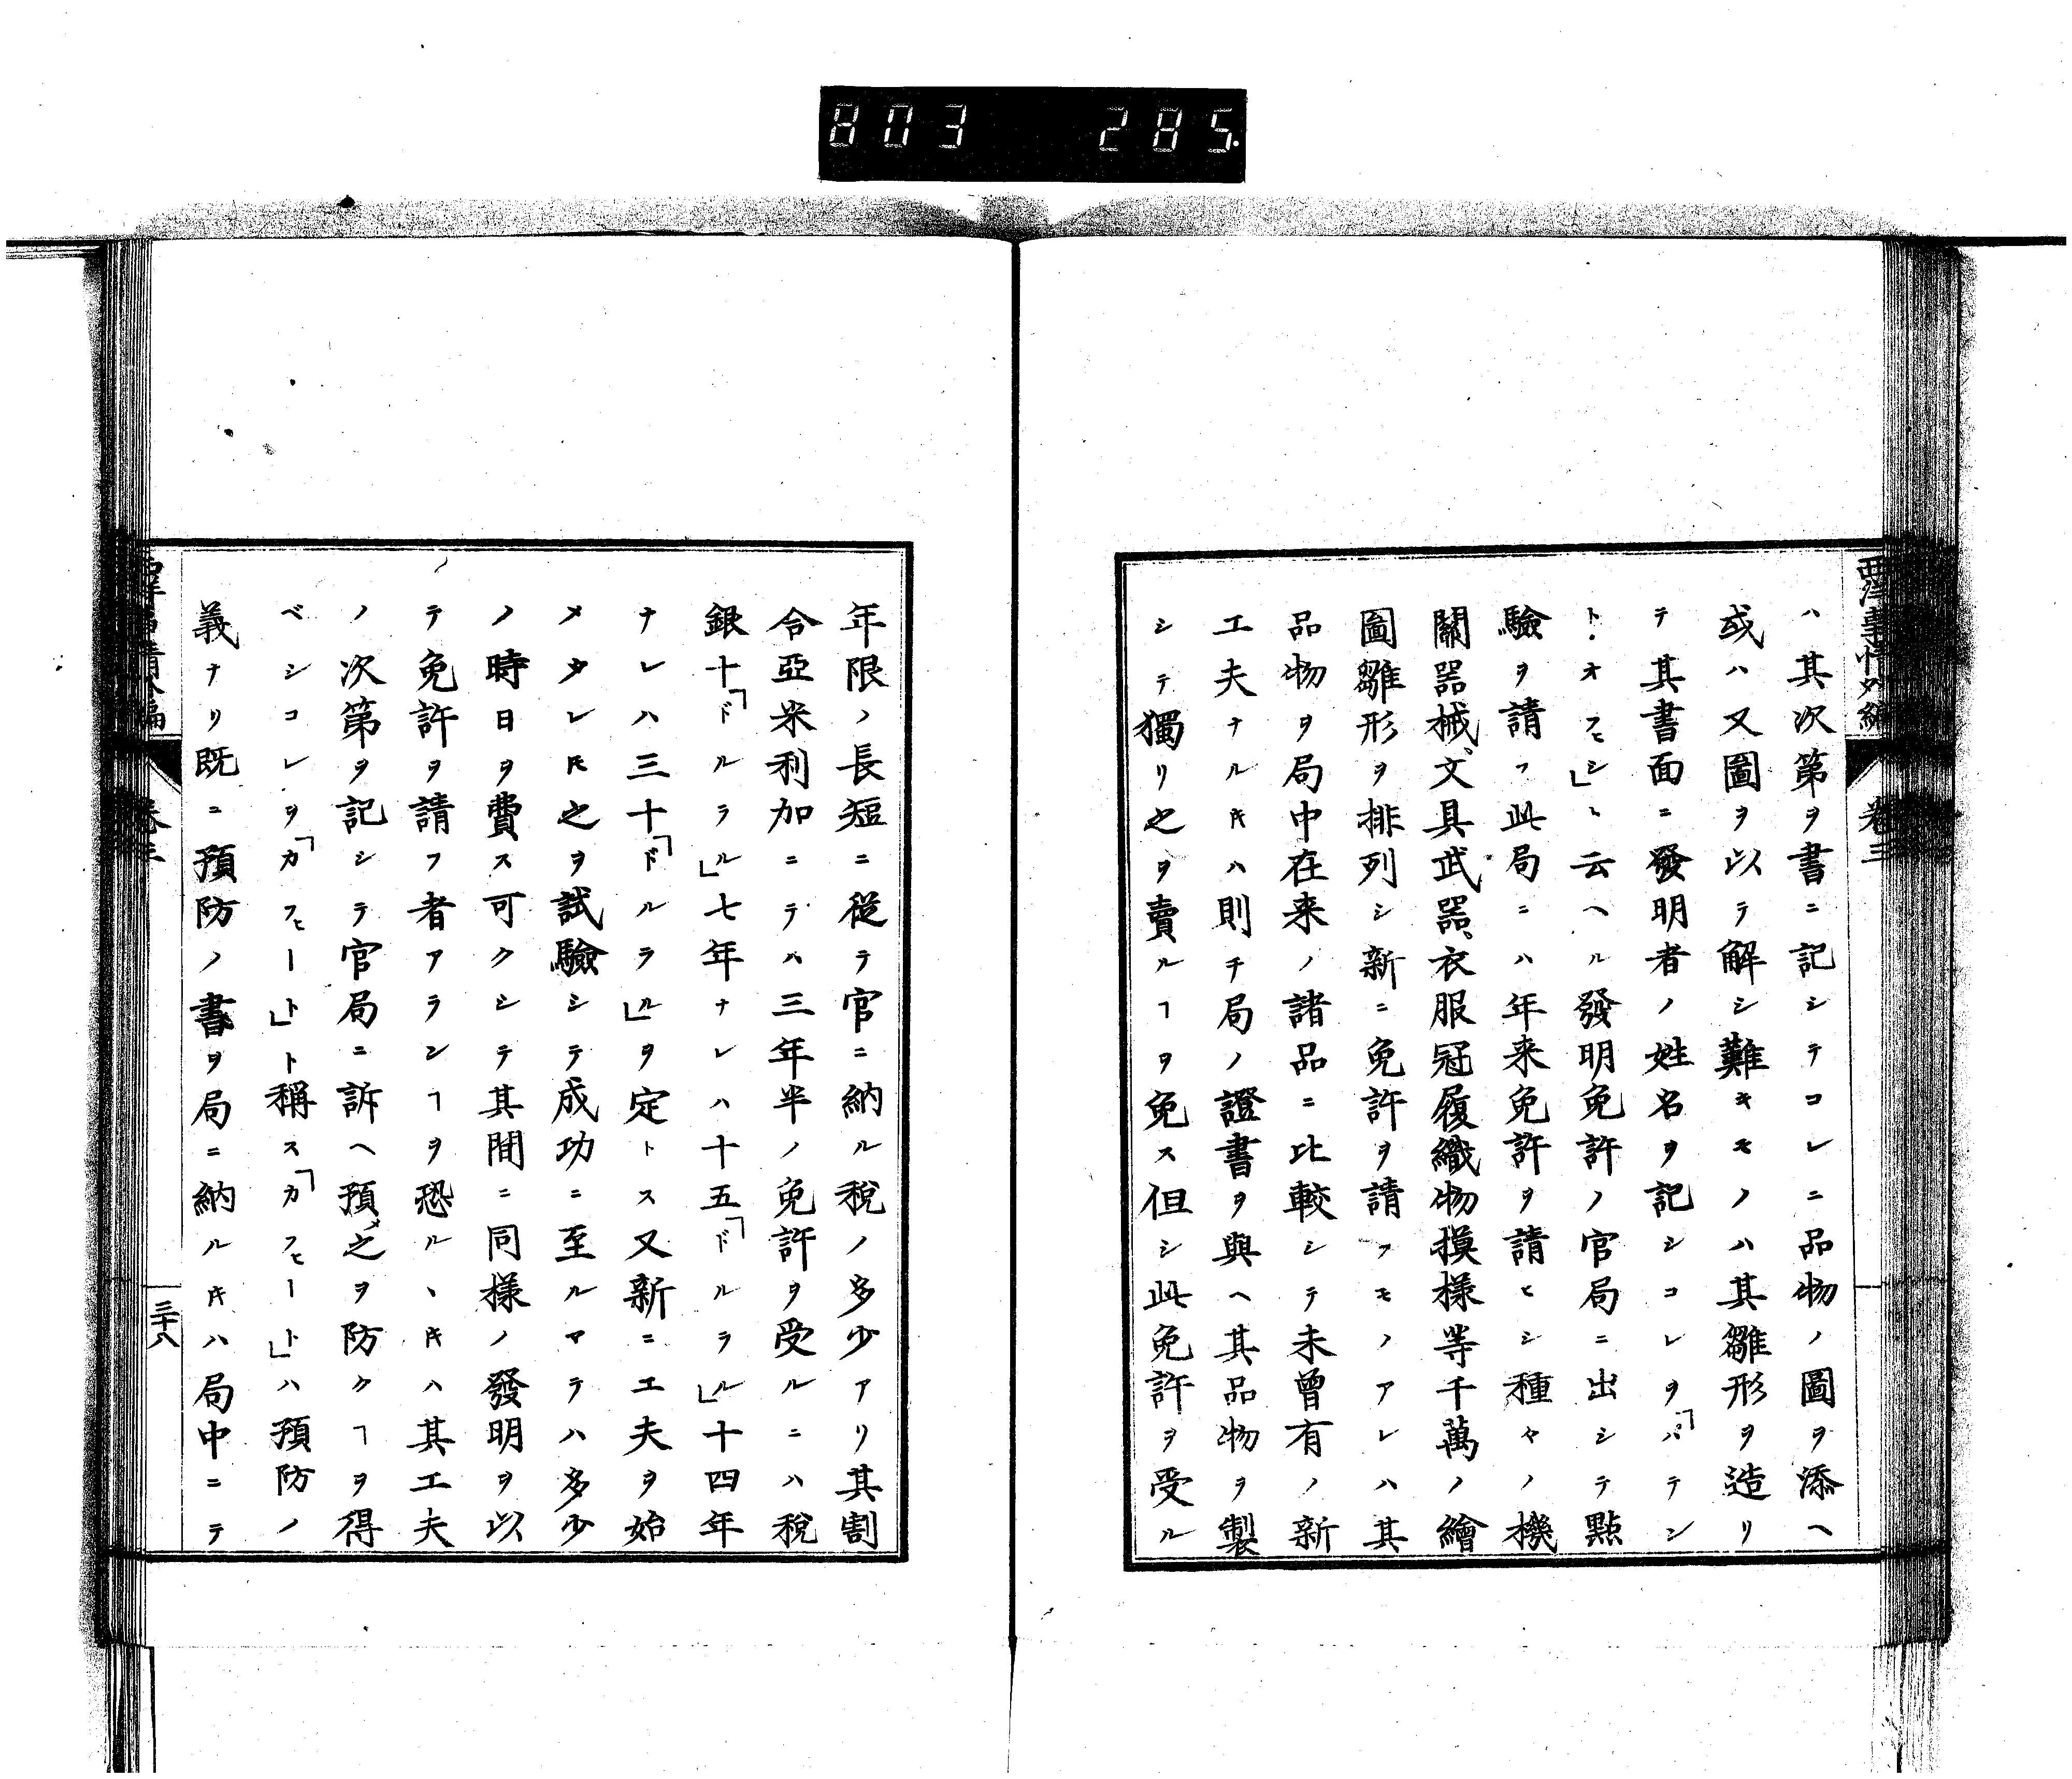 803 285.
西洋事情外編 卷三
ハ其次第ヲ書ニ記シテコレニ品物ノ圖ヲ添ヘ
或ハ又圖ヲ以テ解シ難キモノハ其雛形ヲ造リ
テ其書面ニ發明者ノ姓名ヲ記シコレヲ「パテン
ト・オフヒシ」ト云ヘル發明免許ノ官局ニ出シテ點
驗ヲ請フ此局ニハ年来免許ヲ請ヒシ種々ノ機
關器械、文具武器、衣服冠履織物摸様等千萬ノ繪
圖雛形ヲ排列シ新ニ免許ヲ請フモノアレハ其
品物ヲ局中在来ノ諸品ニ比較シテ未曾有ノ新
工夫ナルキハ則チ局ノ證書ヲ與ヘ其品物ヲ製
シテ獨リ之ヲ賣ルヿヲ免ス但シ此免許ヲ受ル
年限ノ長短ニ從テ官ニ納ル税ノ多少アリ其割
合亞米利加ニテハ三年半ノ免許ヲ受ルニハ税
銀十「ドルラル」七年ナレハ十五「ドルラル」十四年
ナレハ三十「ドルラル」ヲ定トス又新ニ工夫ヲ始
メタレ𪜈之ヲ試驗シテ成功ニ至ルマテハ多少
ノ時日ヲ費ス可クシテ其間ニ同様ノ發明ヲ以
テ免許ヲ請フ者アランヿヲ恐ルヽキハ其工夫
ノ次第ヲ記シテ官局ニ訴ヘ預メ之ヲ防クヿヲ得
ベシコレヲ「カフヒート」ト稱ス「カフヒート」ハ預防ノ
義ナリ既ニ預防ノ書ヲ局ニ納ルキハ局中ニテ
西洋事情外編 卷三 三十八